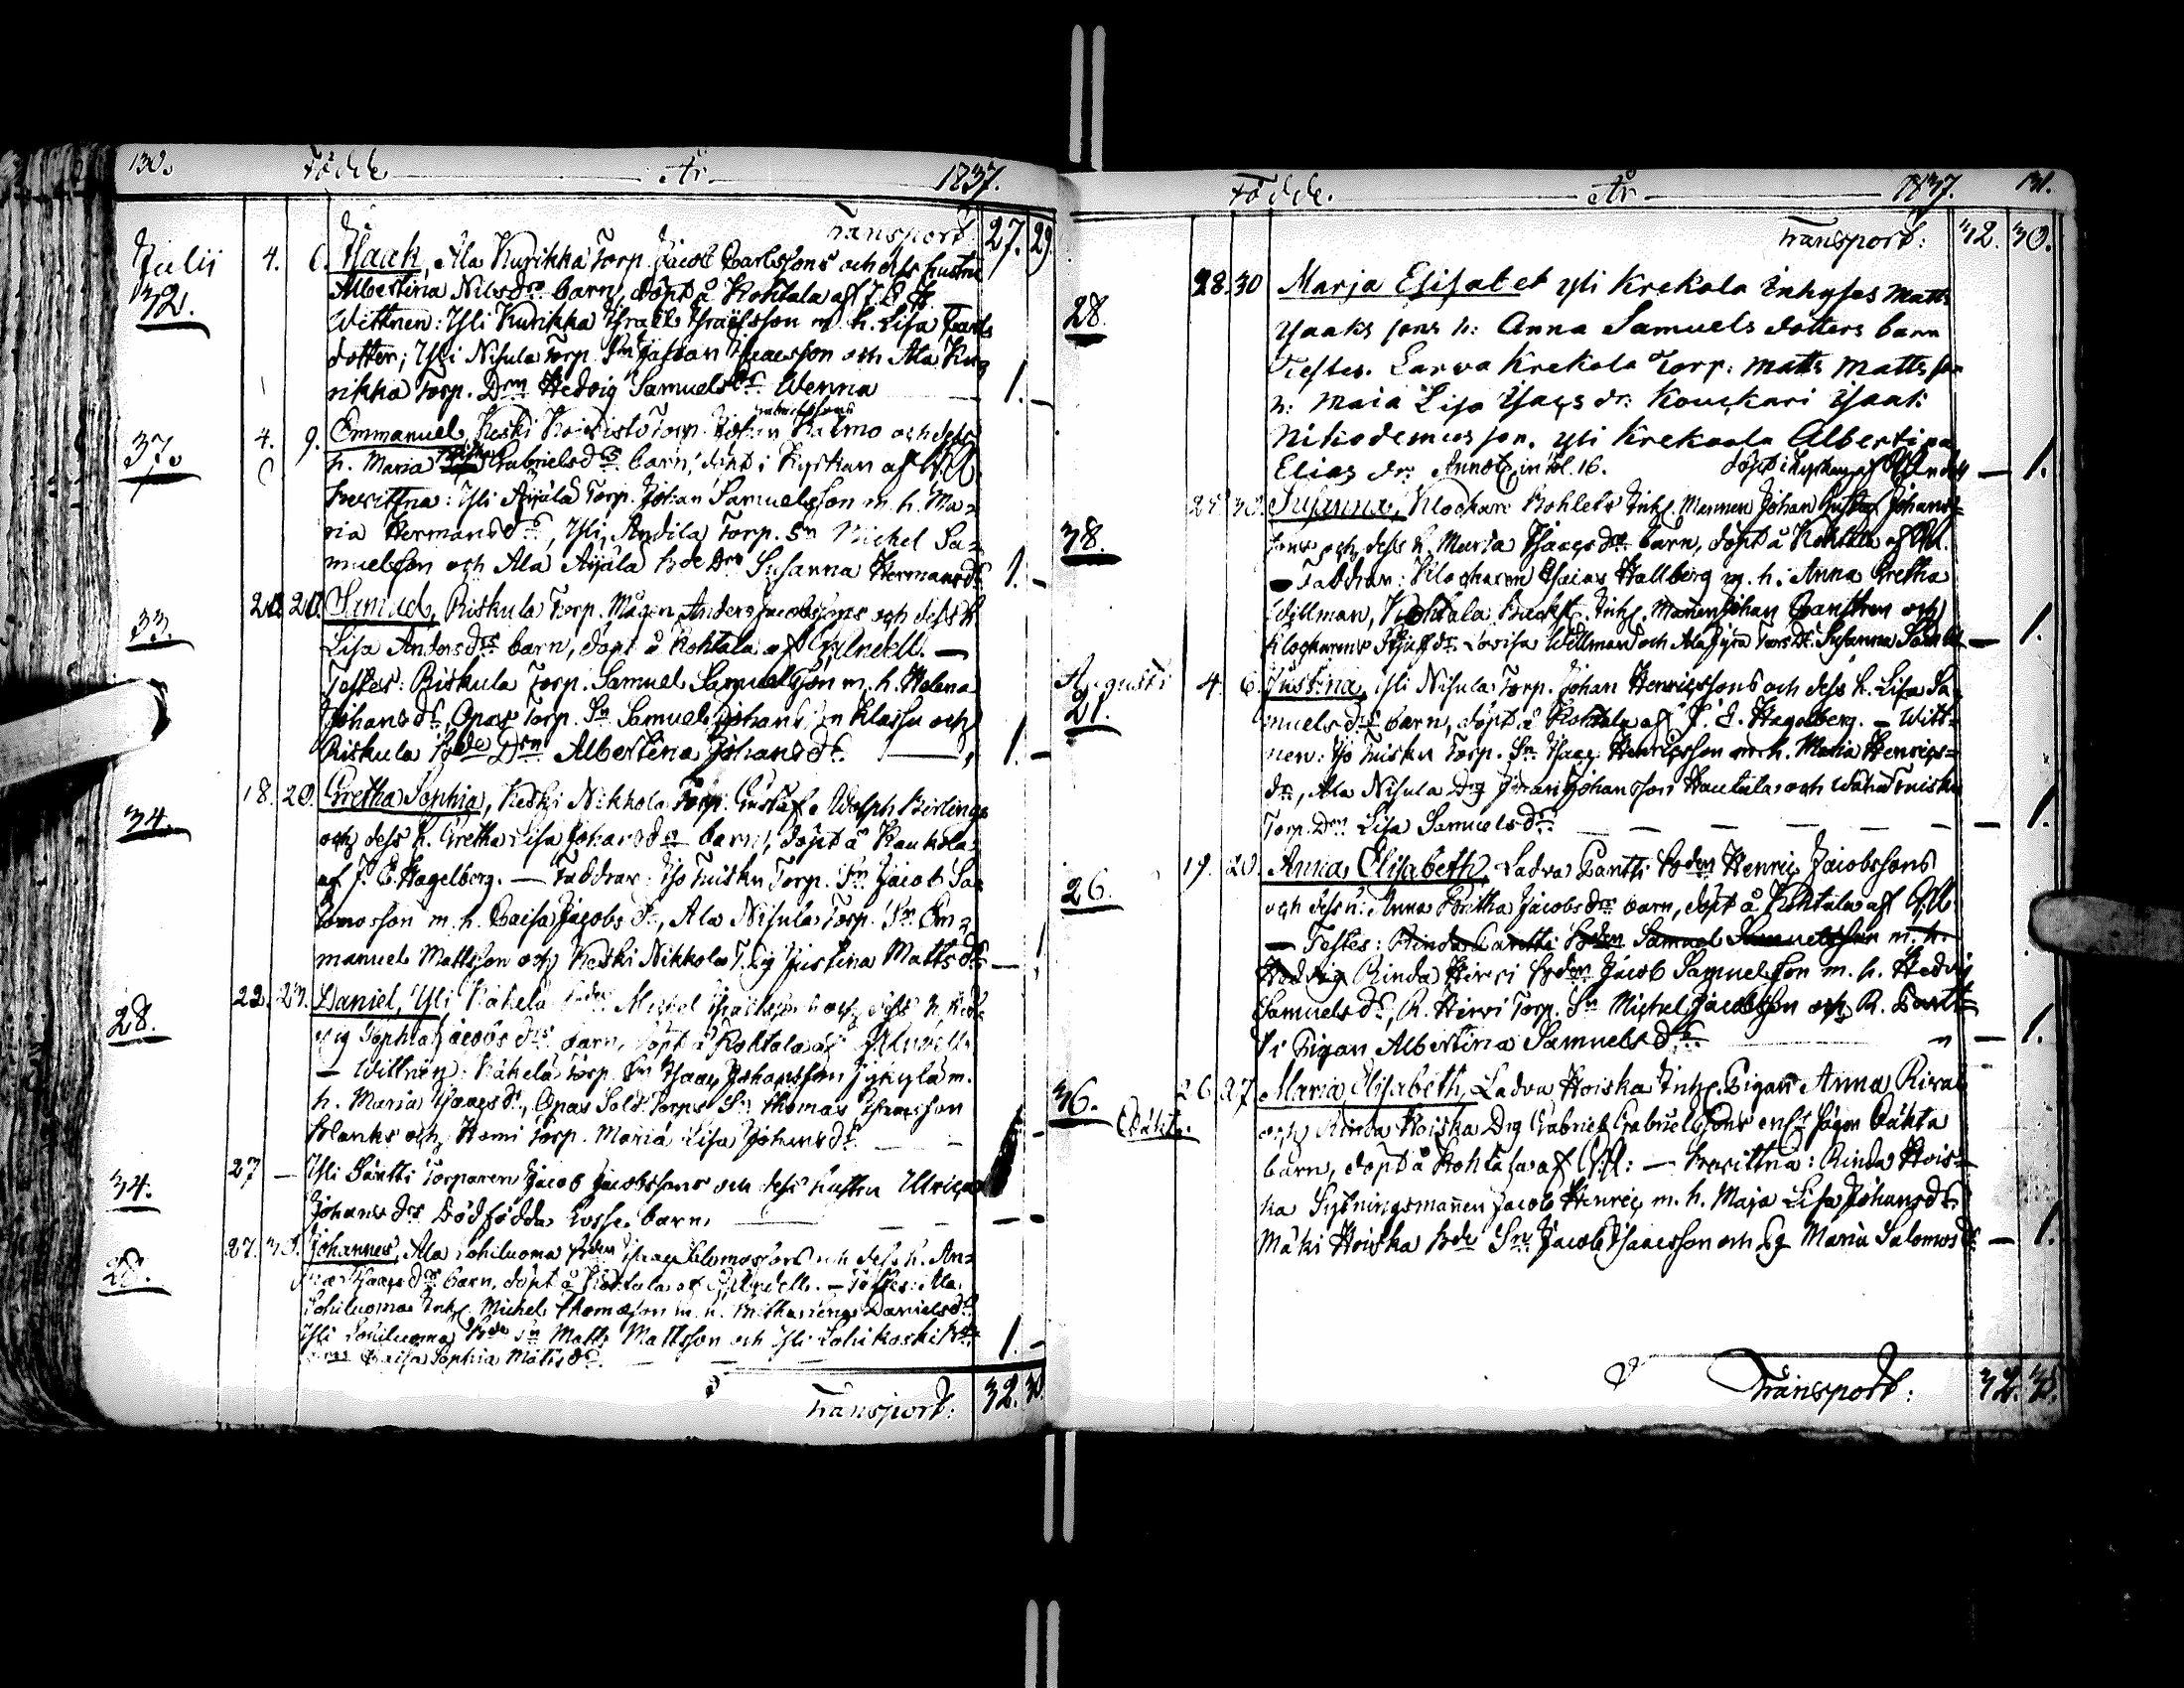 130. Födde År 1837.
Transport: 27. 29.
Julii 4. 6. Isaak, Ala Kurikka Torp. Jacob Carlssons och dess hustru
32. Albertina Nilsdrs barn, döpt å Kohtala af J. E. H.
Wittnen: Yli Kurikka Israels Israelsson m. h. Lisa Carls
dotter; Yli Nisula Torp. Sn Isaacsson och Ala Ku-
rikka Torp. Drn Hedvig Samuelsdr Wenna 1. —
37. 4. 9. Emmanuel, Keski Torp. Johan Kalmo och dess
h. Maria Gabrielsdrs barn, döpt i Kyrkan af
Fwittna: Yli Äijälä Torp. Johan Samuelsson m. h. Ma-
ria Hermansdr, Yli Andila Torp. Sn Michel Sa-
muelsson och Ala Äijälä Bde Drn Susanna Hermansdr 1. —
33. 20. 20. Samuel, Riskula Torp. Mågen Anders Jacobssons och dess h.
Lisa Andersdrs barn, döpt å Kohtala af Arndell. —
Testes: Riskula Torp. Samuel Samuelsson m. h. Helena
Johansdr, Opas Torp. Sn Samuel Johansson Klassu och
Riskula Bde Drn Albertina Johansdr. 1. —
34. 18. 20. Gretha Sophia, Keski Nikkola Torp. Gustaf Adolph Kerlings
och dess h. Gretha Lisa Johansdrs barn, döpt å Kaukola
af J. E. Hagelberg. — Faddrar: Iso Tuisku Torp. Sn Jacob Sa-
lomosson m. h. Caisa Jacobsdr, Ala Nisula Torp. Sn Em-
manuel Mattsson och Keski Nikkola T. Pig Justina Mattsdr — 1
28. 22. 23. Daniel, Yli Käkelä Michel och dess h. Hed-
vig Sophia Jacobsdrs barn, döpt å Kohtala af Arndell.
— Wittnen: Käkelä Torp. Sn Isaac Johansson Jyrylä m.
h. Maria Isaacsdr, Opas Sold. Torps Sn Thomas Thomsson
Blanks och Hemi Torp. Maria Lisa Johansdr. —
34. 27 — Yli Säntti Torparen Jacob Jacobssons och dess hustru Ulrica
Johansdrs Dödfödda Gosse barn. — —
28. 27. 30. Johannes, Ala Lohiluoma Bden Isaac Salomossons och dess h. An-
na Isaacsdrs barn, döpt å Kohtala af Arndell. — Testes: Ala
Lohiluoma Inh. Michel Thomasson m. h. Catharina Danielsdr
Yli Lohiluoma Bde Sn Matts Mattsson och Yli Lohikoski Bde
Caisa Sophia Mattsdr. 1. —
Transport: 32. 30.
Födde. År 1837. 131.
Transport: 32. 30.
28. 28. 30 Marja Elisabet yli Krekola Inhyses Matts
Ysaaks sons h: Anna Samuels dotters barn
Testes. Larva Krekola Torp: Matts Matts son
h: Maia Lisa Ysacs dr: Kouckari Ysaak
Nikodemus son. yli Krekoola Albertina
Elias dr: Annot. in fol. 16. döpt i kyrkan af Arndell — 1.
38. 25. 30. Susanna, Klockare Bohlets Inh. Mannen Johan Gustaf Johans-
sons och dess h. Maria Isaacsdrs barn, döpt å Kohtala af
— Faddrar: Klockaren Esaias Hallberg m. h. Anna Gretha
Willman, Kohtala Backst. Inh. Mannen Johan och
Klockarens Lovisa Willman och Ala Jyrä Susanna — 1.
Augusti 4. 6. Justina, Yli Nisula Torp. Johan Henricssons och dess h. Lisa Sa-
21. muelsdrs barn, döpt å Kohtala af J. E. Hagelberg. — Witt-
nen: Iso Tuisku Torp. Sn Isaac Henricsson m. h. Maria Henrics-
dr, Ala Nisula Drg Johan Johansson Hautala och Wähä Tuisku
Torp. Drn Lisa Samuelsdr. — 1.
26. 19. 20. Anna Elisabeth, Ladva Pantti Bden Henric Jacobssons
och dess h: Anna Britha Jacobsdrs barn, döpt å Kohtala af
— Testes: Rinda Pantti Bden Samuel Samuelsson m. h.
Hedvig Rinda Hirvi Bden Jacob Samuelsson m. h. Hedvig
Samuelsdr, R. Hirvi Torp. Sn Michel Jacobsson och R. Pant-
ti Pigan Albertina Samuelsdr. — 1.
36. Oäkta. 26. 27. Maria Elisabeth, Ladva Hoiska Inh. Pigans Anna
och Rinda Hoiska Drg Gabriel Gabrielssons Oäkta
barn, döpt å Kohtala af — Fwittna: Rinda Hois-
ka Sytningsmannen Jacob Henric m. h. Maja Lisa Johansdr.
Mäki Hoiska Bde Sn Jacob Isaacsson och Pg Maria Salomosdr — 1.
Transport: 32. 35.